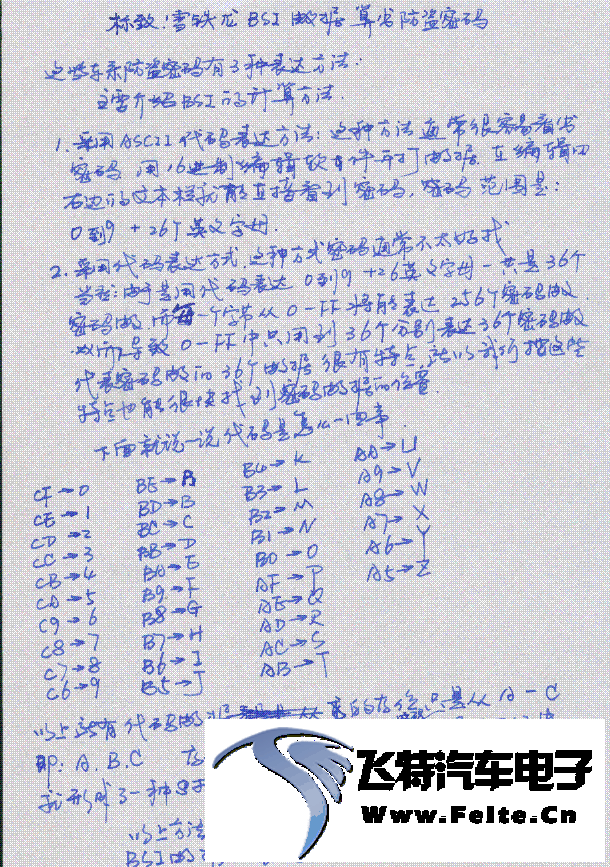 标致!雪铁龙 BSI 数据算出防盗密码
这些车系防盗密码有3种表达方法:
主要介绍BSI的计算方法.
1. 采用ASCII代码表达方法:这种方法通常很容易看出
密码 用16进制编辑软件打开数据. 在编辑口
右边的文本框就能直接看到密码, 密码范围是:
0到9 + 26个英文字母.
2. 采用代码表达方式. 这种方式密码通常不太好找
由于是用代码表达 0到9 +26英文字母一共是36个
密码数, 而每一个字节从0-FF将能表达256个密码数.
所以导致 0-FF中只用到36个分别表达36个密码数
代表密码数的36个数据很有特点, 所以我们按这些
特点也能很快找到密码数据的位置.
下面就说一说代码是怎么一回事.
CF→0 BE→A B4→K AA→U
CE→1 BD→B B3→L A9→V
CD→2 BC→C B2→M A8→W
CC→3 BB→D B1→N A7→X
CB→4 BA→E B0→O A6→Y
CA→5 B9→F AF→P A5→Z
C9→6 B8→G AE→Q
C8→7 B7→H AD→R
C7→8 B6→I AC→S
C6→9 B5→J AB→T
以上所有代码数 的存位只是从A-C
即: A.B.C 存
就形成了一种
以上方法
BSI的
飞特汽车电子
Www.Felte.Cn